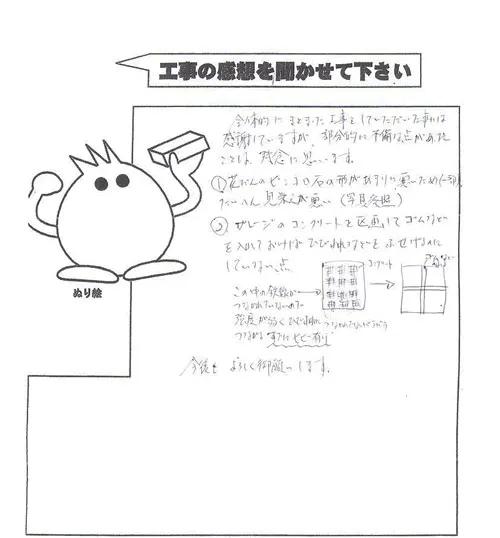 工事の感想を聞かせて下さい
全体的にまとまった工事をしていただいた事は
感謝していますが、部分的に不備な点があった
ことは、残念に思います。
①花だんのピンコロ石の形があまりに悪いため(一部)
たいへん見栄えが悪い(写真参照)
②ガレージのコンクリートを区画してゴムなど
を入れておけばひび割れなどをふせげるのに
していない点
コンクリート
この中の鉄線が
つながれていないので
強度が弱くひび割れに
つながる
すでにヒビ有り
今後もよろしく御願いします。
ぬり絵